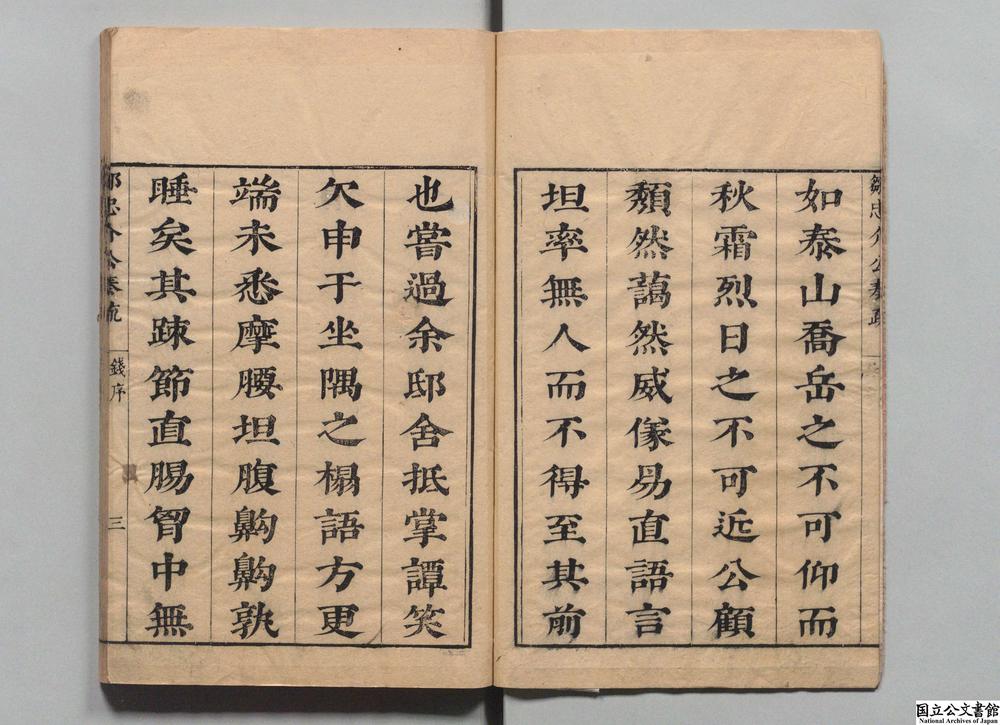 如泰山喬岳之不可仰而
秋霜烈日之不可近公顧
頽然藹然威儀易直語言
坦率無人而不得至其前
也嘗過余邸舍抵掌譚笑
欠申于坐隅之榻語方更
端未悉摩腰坦腹齁齁孰
睡矣其疎節直腸胷中無
鄒忠介公奏疏
錢序
三
国立公文書館
National Archives of Japan